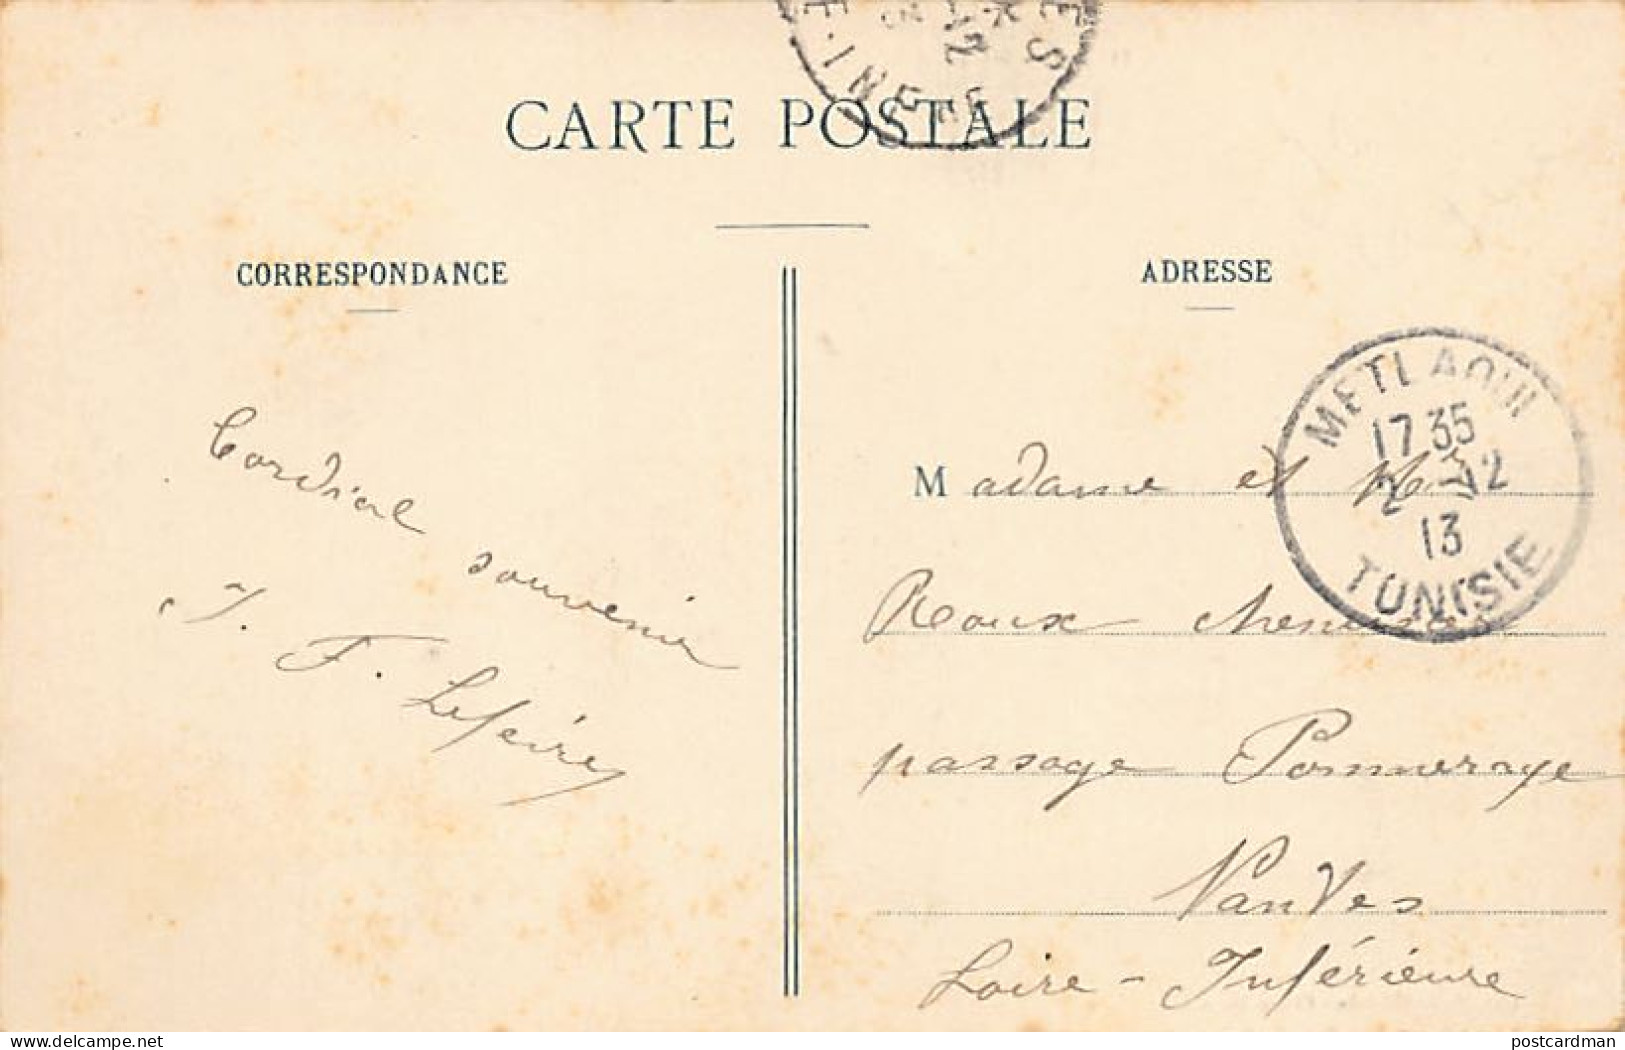 CARTE POSTALE
CORRESPONDANCE
ADRESSE
Cordial souvenir
J. F. Lefeire
METLAOUI
17 35
2 12
13
TUNISIE
Madame et Mr
Roux
passage Pommeraye
Nantes
Loire - Inférieure
delcampe.net
postcardman